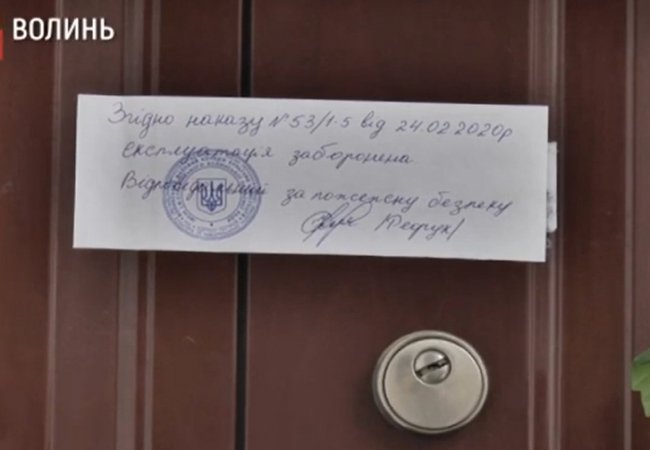 ВОЛИНЬ
Згідно наказу №53/1-5 від 24.02.2020р
експлуатація заборонена
Відповідальний за пожежну безпеку
/Федрук/